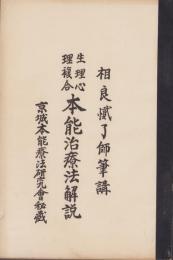 相良懺了師筆講
生理心
理複合
本能治療法解説
京城本能療法研究會秘藏